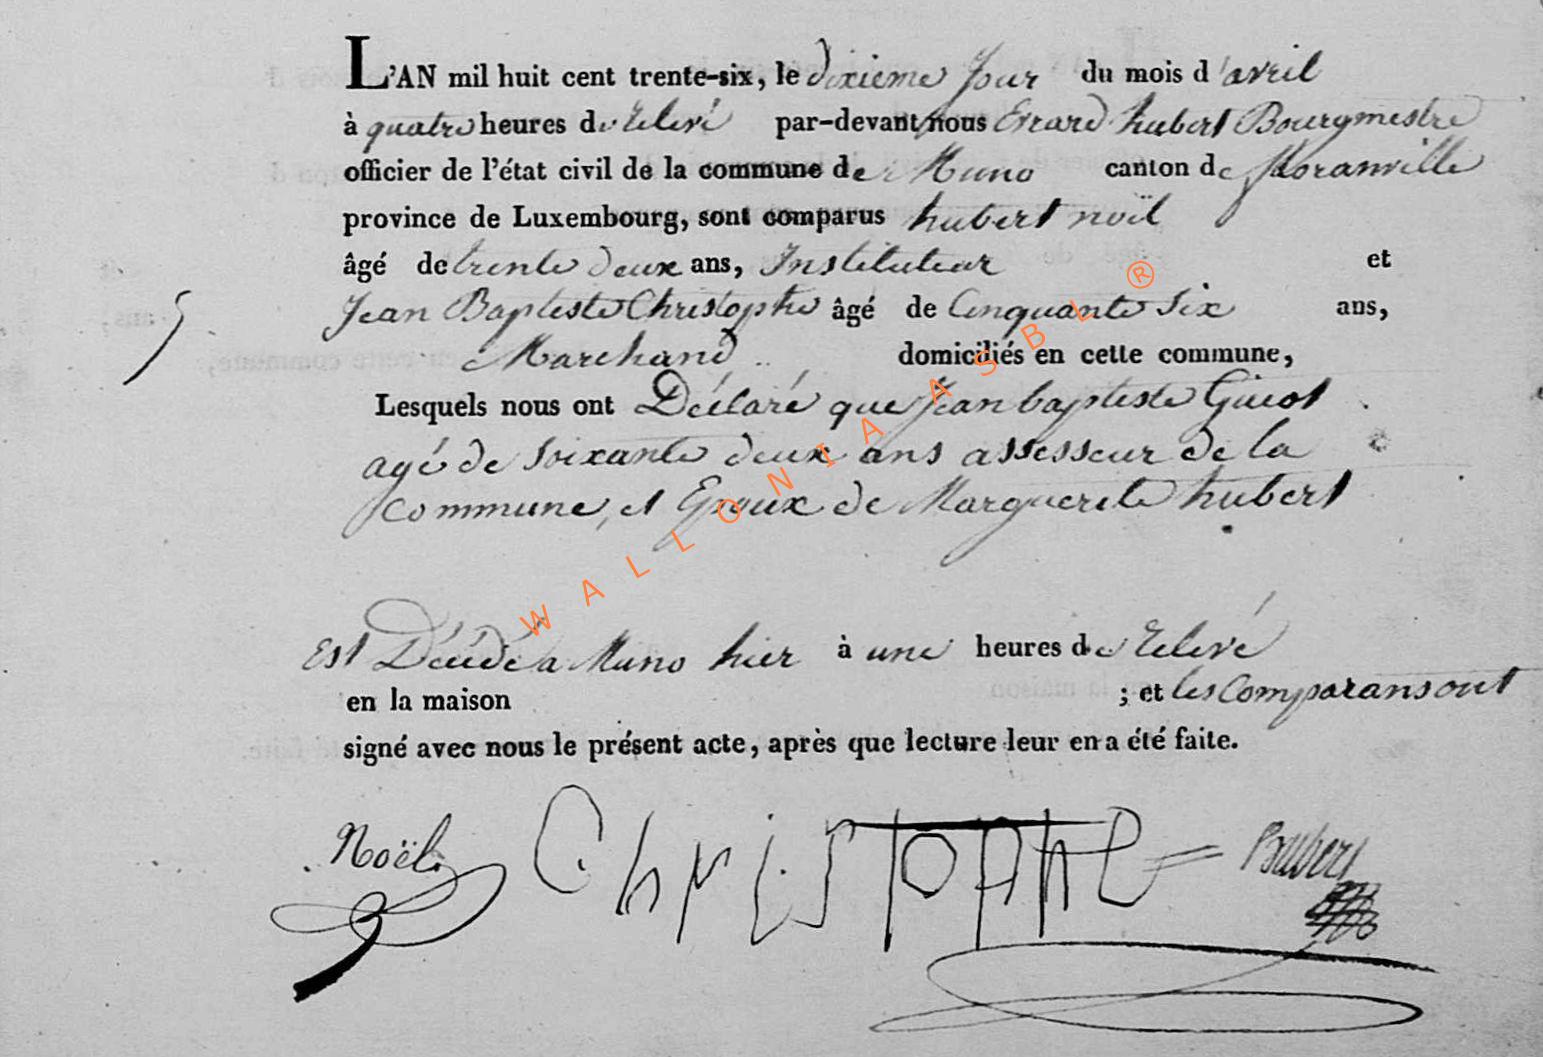 L'AN mil huit cent trente-six, le dixieme Jour du mois d'avril
à quatre heures de relevé par-devant nous Errard hubert Bourgmestre
officier de l'état civil de la commune de Muno canton de floranville
province de Luxembourg, sont comparus hubert noël
âgé de trente deux ans, Instituteur et
5 Jean Baptiste Christophe âgé de Cinquante Six ans,
Marchand domiciliés en cette commune,
Lesquels nous ont Déclaré que Jean baptiste Guiot
agé de Soixante deux ans assesseur de la
commune, et Epoux de Marguerite hubert
Est Décédé a Muno hier à une heures de relevé
en la maison ; et les Comparans ont
signé avec nous le présent acte, après que lecture leur en a été faite.
Noël Christophe
WALLONIA ASBL ®